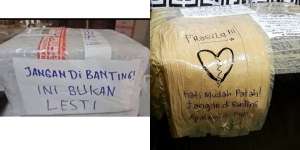 JANGAN Di BANTING!
INI BUKAN
LESTI
Hati Mudah Patah!
Jangan di Banting